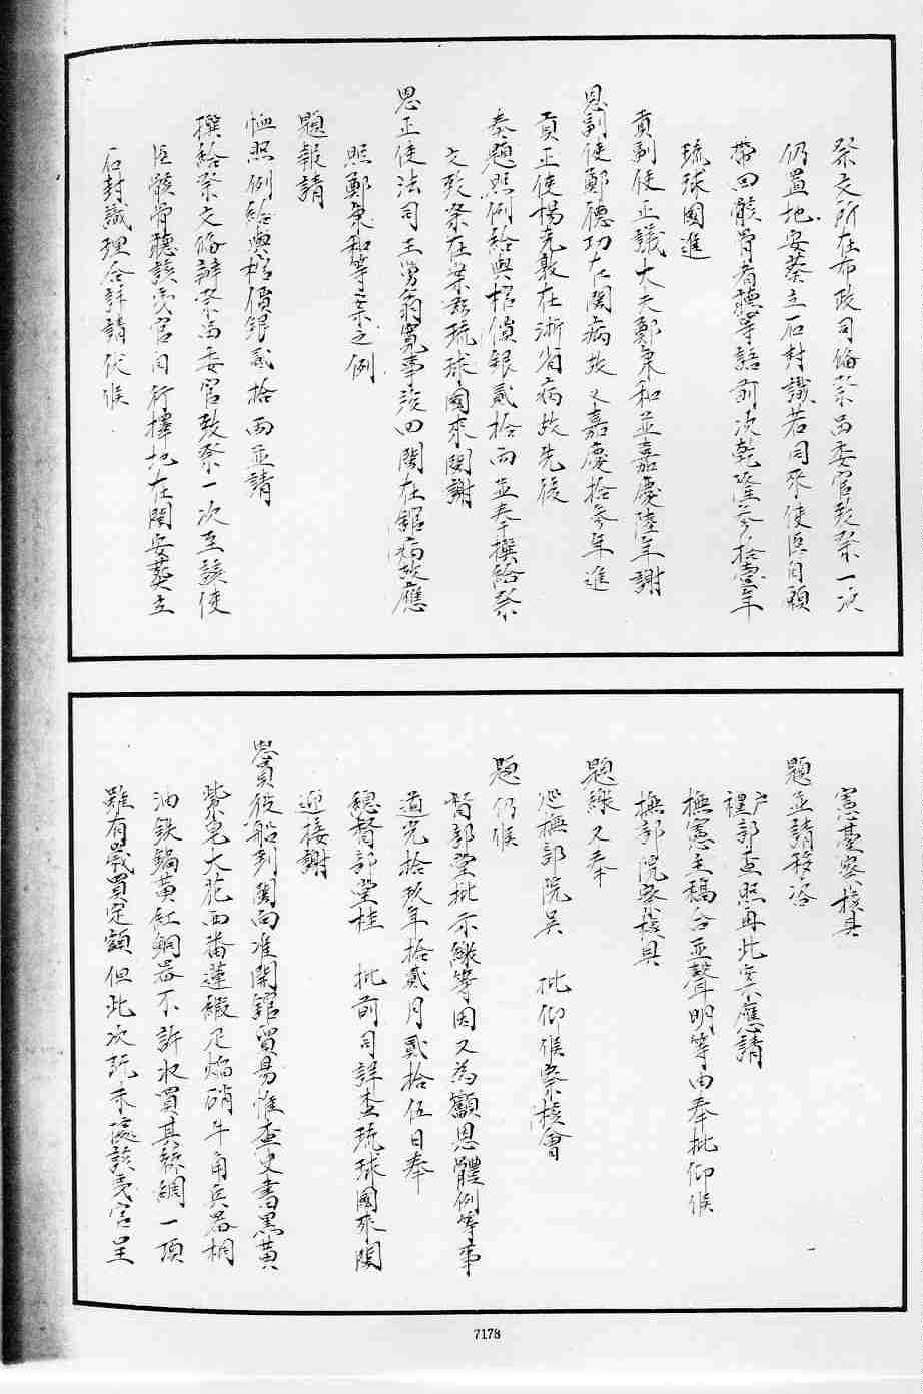 祭文所在布政司備祭品委官致祭一次
仍置地安葬立石封識若同來使臣自願
帶回骸骨者聽等語前次乾隆叁拾壹年
琉球國進
貢副使正議大夫鄭秉和並嘉慶陸年謝
恩副使鄭德功在閩病故又嘉慶拾叁年進
貢正使楊克敦在浙省病故先後
奏題照例給與棺價銀貳拾兩並奉撰給祭
文致祭在案茲琉球國來閩謝
恩正使法司王舅翁寬事竣回閩在館病故應
照鄭秉和等案之例
題報請
恤照例給與棺價銀貳拾兩並請
撰給祭文備辦祭品委官致祭一次至該使
臣骸骨聽該夷官自行擇地在閩安葬立
石封識理合詳請伏候
憲臺察核具
題並請移咨
禮戶部查照再此案應請
撫憲主稿合並聲明等由奉批仰候
撫部院察核具
題繳又奉
巡撫部院吳 批仰候察核會
題仍候
督部堂批示繳等因又為籲恩體例等事
道光拾玖年拾貳月貳拾伍日奉
總督部堂桂 批前司詳查琉球國來閩
迎接謝
恩貢使船到閩向准開館貿易惟查史書黑黃
紫皂大花西番蓮緞疋焰硝牛角兵器桐
油鐵鍋黃紅銅器不許收買其絲綢一項
雖有買定額但此次既未據該夷官呈
7178